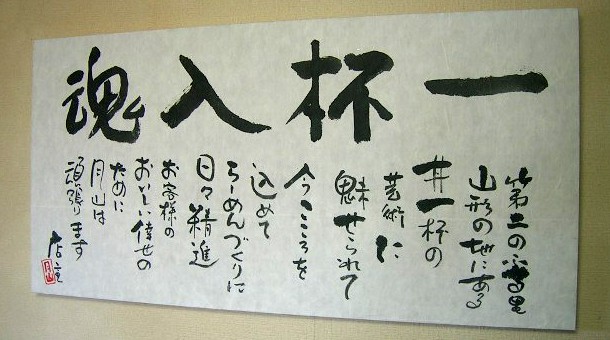 一杯入魂
第二の里
山形の地にある
丼一杯の
芸術に
魅せられて
今こころを
込めて
らーめんづくりに
日々精進
お客様の
おいしい幸せの
ために
月山は
頑張ります
店主
月山